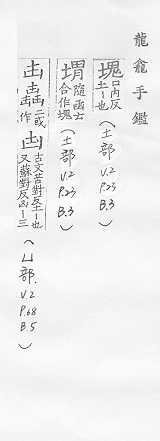 龍龕手鑑
塊 口內反土~也 (土部 V.2 P.23 B.3)
堒 隨函士合作塊 (土部 V.2 P.23 B.3)
二或作 凷 古文苦對反土~也又蘇對反凷~三 (凵部. V.2 P.68 B.5)